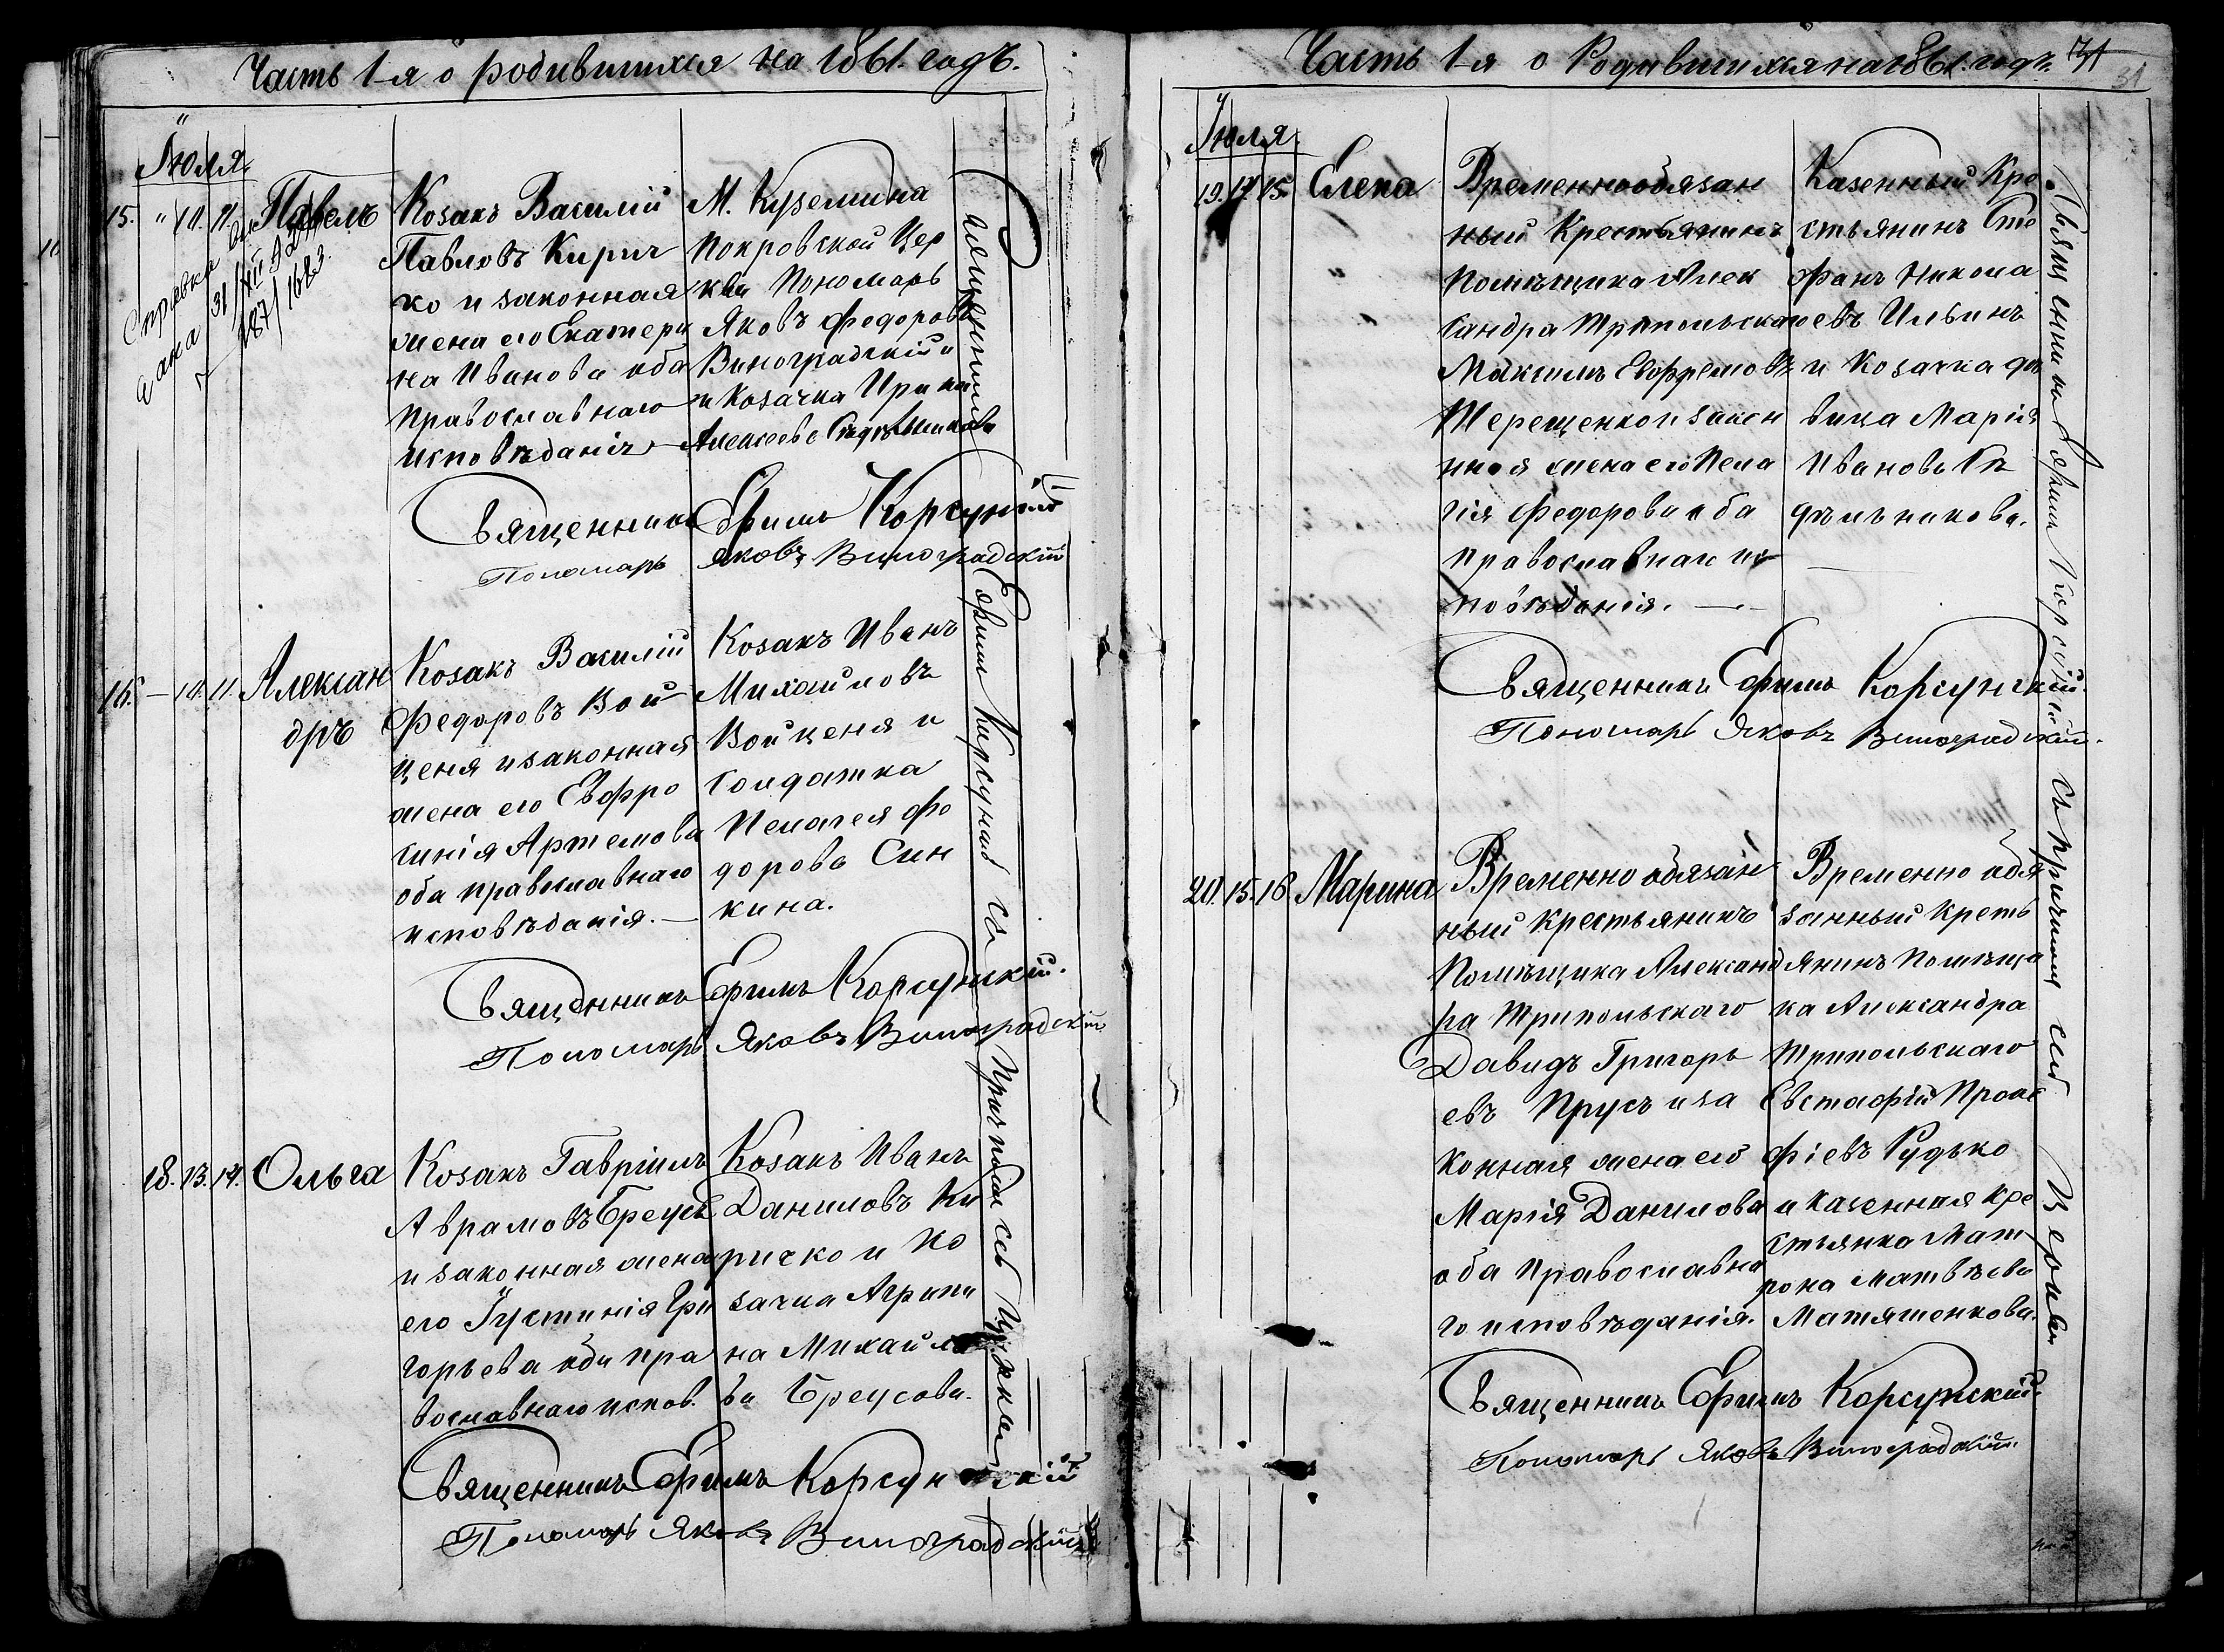 Часть 1-я о родившихся на 1861. годъ.
Іюля
15. " 10. 11. Павелъ
Справка
дана 31/XII
287/1683.
Козакъ Василій
Павловъ Кирич
ко и законная
жена его Екатери
на Иванова оба
православнаго
исповѣданія
М. Куземина
Покровской Цер
кви Пономарь
Яковъ Федоровъ
Виноградскій и
и Козачка Ирина
Алексеева
Священникъ Ефимъ Корсунскій
Пономарь Яковъ Виноградскій
16. — 10. 11. Алексан
дръ
Козакъ Василій
Федоровъ Вой
ценя и законная
жена его Евфро
синія Артемова
оба православнаго
исповѣданія. —
Козакъ Иванъ
Михайловъ
Войценя и
Солдатка
Пелагея Фе
дорова Син
кина.
Священникъ Ефимъ Корсунскій.
Пономарь Яковъ Виноградскій
18. 13. 14. Ольга
Козакъ Гавріилъ
Аврамовъ Бреусъ
и законная жена
его Іустинія Гри
горьева оба пра
вославнаго испов.
Козакъ Иванъ
Даниловъ Ки
ричко и Ко
зачка Агрипи
на Михайло
ва Бреусова.
Священникъ Ефимъ Корсунскій
Пономарь Яковъ Виноградскій
Священникъ Ефимъ Корсунскій съ Причтомъ сей Церкви
Часть 1-я о Родившихся на 1861. годъ.
31
31
Іюля.
19. 14. 15. Елена
Временнообязан
ный Крестьянинъ
Помѣщика Алек
сандра Трипольскаго
Максимъ Евфремовъ
Терещенко и закон
ная жена его Пела
гія Федорова оба
православнаго ис
повѣданія. —
Казенный Кре
стьянинъ Сте
фанъ Никола
евъ Ильинъ
и Козачка дѣ
вица Марія
Иванова Сѣ
дѣльникова.
Священникъ Ефимъ Корсунскій.
Пономарь Яковъ Виноградскій.
20. 15. 16. Марина
Временно обязан
ный Крестьянинъ
Помѣщика Александ
ра Трипольскаго
Давидъ Григорь
евъ Прусъ и за
конная жена его
Марія Данилова
оба Православна
го исповѣданія.
Временно обя
занный Кресть
янинъ Помѣщи
ка Александра
Трипольскаго
Евстафій Проко
фіевъ Рудько
и казенная кре
стьянка Мат
рона Матвѣева
Матяшенкова.
Священникъ Ефимъ Корсунскій.
Пономарь Яковъ Виноградскій.
Священникъ Ефимъ Корсунскій съ причтомъ сей Церкви